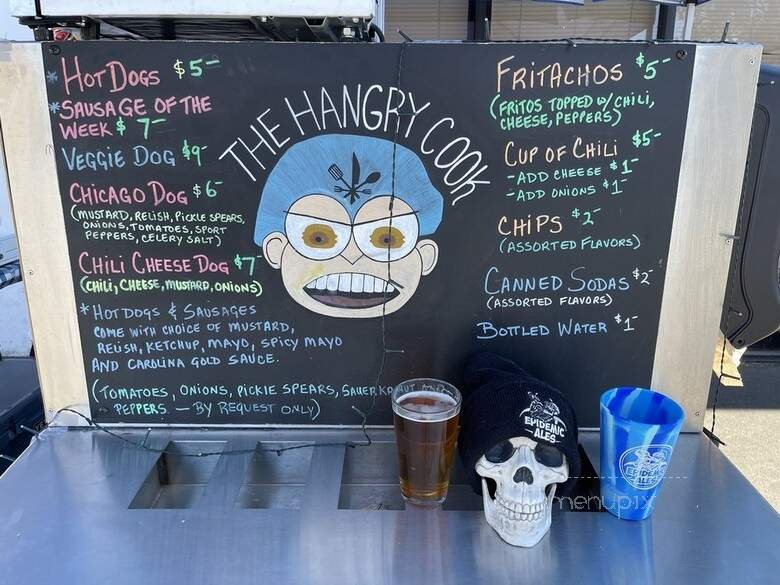 * HOT DOGS $5-
* SAUSAGE OF THE
WEEK $7-
VEGGIE DOG $9-
CHICAGO DOG $6-
(MUSTARD, RELISH, PICKLE SPEARS,
ONIONS, TOMATOES, SPORT
PEPPERS, CELERY SALT)
CHILI CHEESE DOG $7-
(CHILI, CHEESE, MUSTARD, ONIONS)
* HOT DOGS & SAUSAGES
COME WITH CHOICE OF MUSTARD,
RELISH, KETCHUP, MAYO, SPICY MAYO
AND CAROLINA GOLD SAUCE.
(TOMATOES, ONIONS, PICKLE SPEARS, SAUERKRAUT AND
PEPPERS - BY REQUEST ONLY)
THE HANGRY COOK
FRITACHOS $5-
(FRITOS TOPPED W/ CHILI,
CHEESE, PEPPERS)
CUP OF CHILI $5-
- ADD CHEESE $1-
- ADD ONIONS $1-
CHIPS $2-
(ASSORTED FLAVORS)
CANNED SODAS $2-
(ASSORTED FLAVORS)
BOTTLED WATER $1-
EPIDEMIC
-ALES-
EPIDEMIC
ALES
menupix